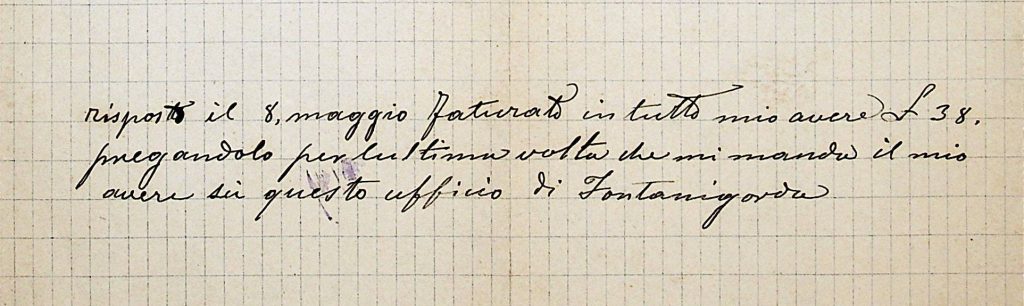 risposto il 8, maggio faturato in tutto mio avere £ 38.
pregandolo per lultima volta che mi manda il mio
avere sù questo ufficio di Fontanigorda